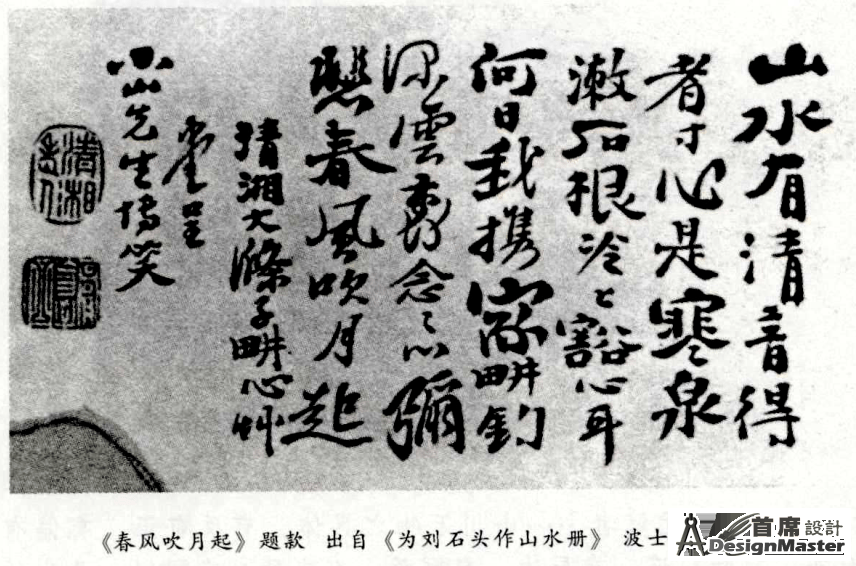 山水有清音得
者寸心是寒泉
漱石根冷々豁心耳
何日我携家畊釣
深雲裏念之心彌
慇春風吹月起
清湘大滌子畊心艸
堂呈
小山先生博笑
清湘老人
《春风吹月起》题款 出自《为刘石头作山水册》 波士
首席設計
DesignMaster